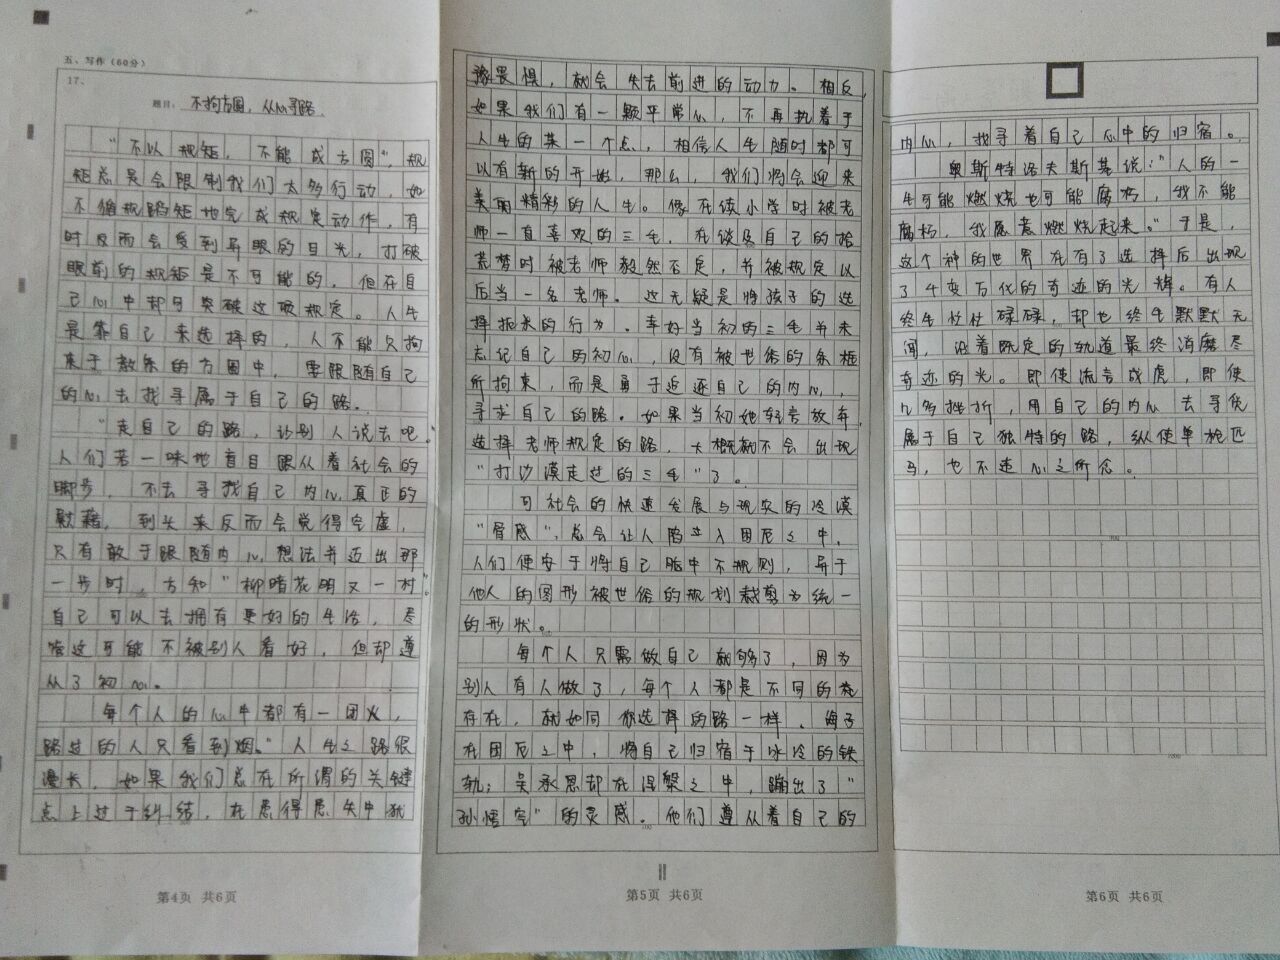 五、写作（60分）
17、
题目： 不拘方圆，从心寻路.
"不以规矩，不能成方圆"，规
矩总是会限制我们太多行动，如
不循规蹈矩地完成规定动作，有
时反而会受到异眼的目光，打破
眼前的规矩是不可能的，但在自
己心中却可突破这项规定。人生
是靠自己来选择的，人不能只拘
束于教条的方圆中，要跟随自己
的心去找寻属于自己的路。
"走自己的路，让别人说去吧。"
人们若一味地盲目跟从着社会的
脚步，不去寻找自己内心真正的
慰藉，到头来反而会觉得空虚，
只有敢于跟随内心想法并迈出那
一步时，方知"柳暗花明又一村"。
自己可以去拥有更好的生活，尽
管这可能不被别人看好，但却遵
从了初心。
每个人的心中都有一团火，
路过的人只看到烟。"人生之路很
漫长，如果我们总在所谓的关键
点上过于纠结，在患得患失中犹
豫畏惧，就会失去前进的动力。相反，
如果我们有一颗平常心，不再执着于
人生的某一个点，相信人生随时都可
以有新的开始，那么，我们将会迎来
美丽精彩的人生。像在读小学时被老
师一直喜欢的三毛，在谈及自己的拾
荒梦时被老师毅然否定，并被规定以
后当一名老师。这无疑是将孩子的选
择扼杀的行为。幸好当初的三毛并未
忘记自己的初心，没有被世俗的条框
所拘束，而是勇于追逐自己的内心，
寻求自己的路。如果当初她轻言放弃，
选择老师规定的路，大概就不会出现
"打沙漠走过的三毛"了。
可社会的快速发展与现实的冷漠
"骨感"，总会让人陷入困厄之中，
人们便安于将自己脑中不规则，异于
他人的图形被世俗的规划裁剪为统一
的形状。
每个人只需做自己就够了，因为
别人有人做了，每个人都是不同的
存在，就如同你选择的路一样。海子
在困厄之中，将自己归宿于冰冷的铁
轨；吴承恩却在涅槃之中，蹦出了"
孙悟空"的灵感。他们遵从着自己的
内心，找寻着自己心中的归宿。
奥斯特洛夫斯基说："人的一
生可能燃烧也可能腐朽，我不能
腐朽，我愿意燃烧起来。"于是，
这个神的世界在有了选择后出现
了千变万化的奇迹的光辉。有人
终生忙忙碌碌，却也终生默默无
闻，沿着既定的轨道最终消磨尽
奇迹的光。即使流言成虎，即使
几多挫折，用自己的内心去寻优
属于自己独特的路，纵使单枪匹
马，也不违心之所念。
第4页 共6页
第5页 共6页
第6页 共6页